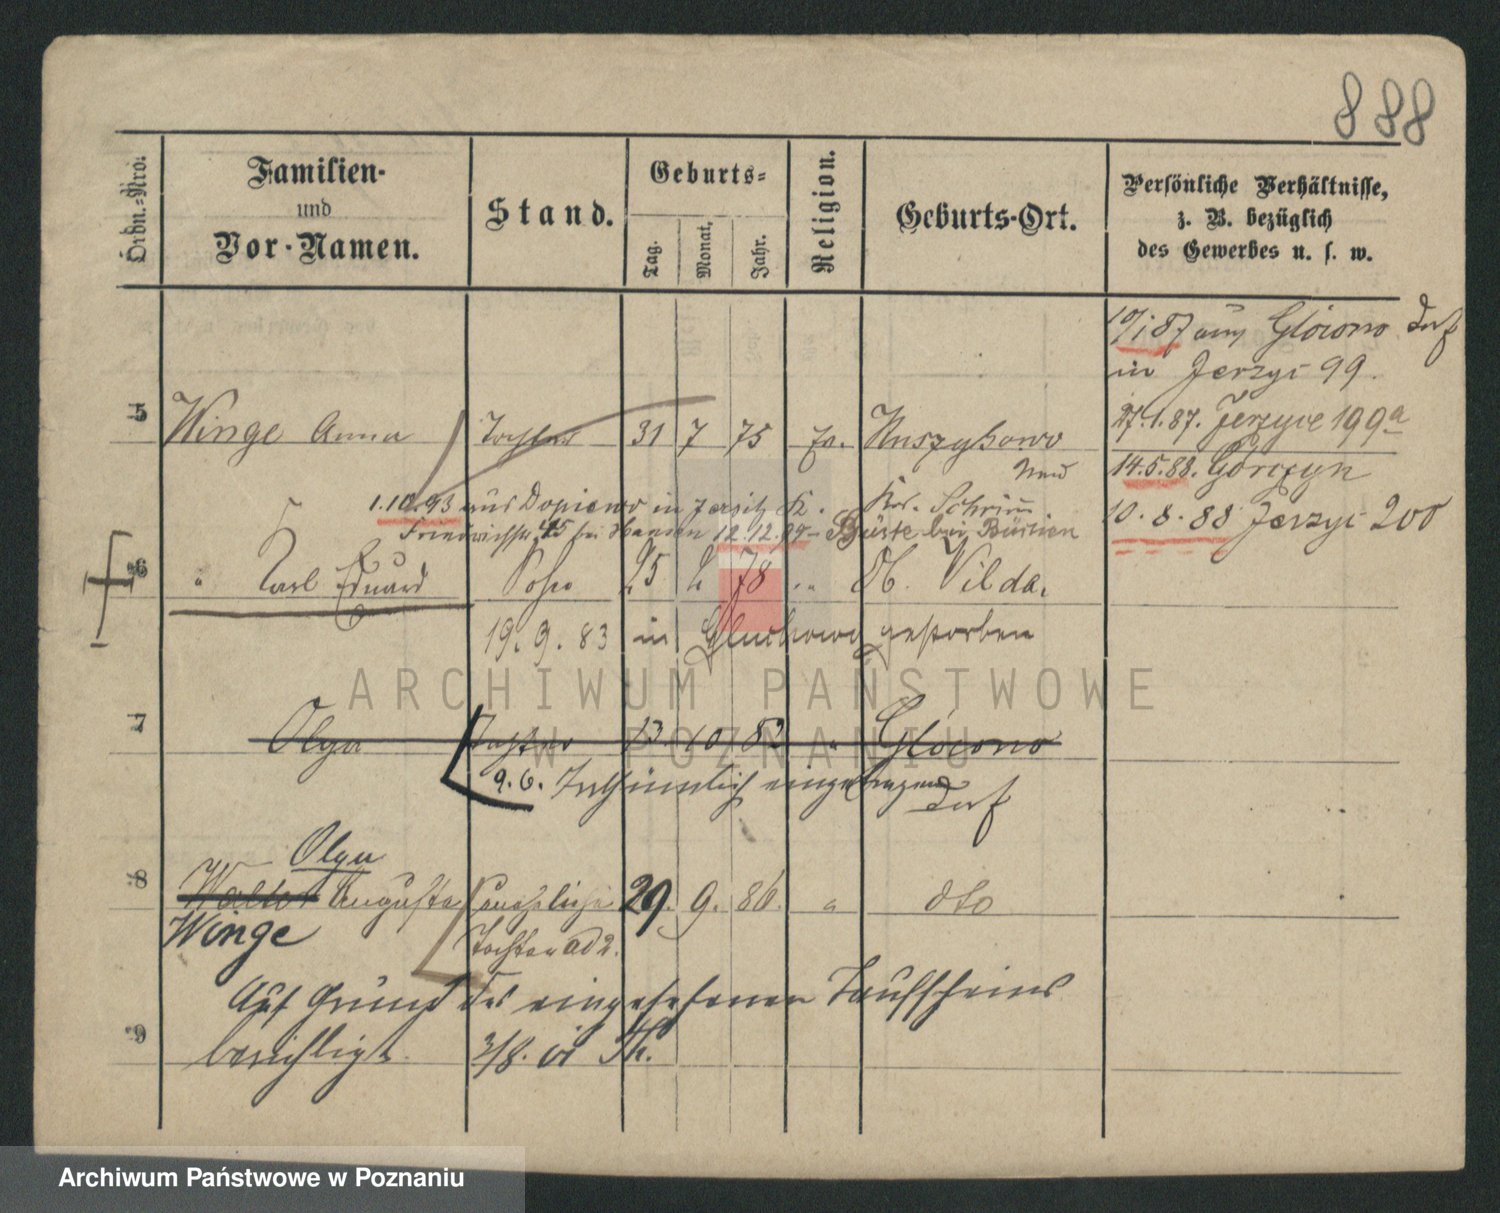 888
Ordn.-Nro.
Familien-
und
Vor-Namen.
Stand.
Geburts-
Tag.
Monat.
Jahr.
Religion.
Geburts-Ort.
Persönliche Verhältnisse,
z. B. bezüglich
des Gewerbes u. s. w.
10/1 87 aus Glówno Dorf
in Jerzyi 99.
5 Winge Anna Tochter 31 7 75 Kuszykowo 27.1.87. Jerzyce 199a
14.5.88. Górczyn
1.10.93 aus Dopiewo in Jersitz Krs. Schrimm
10.8.88 Jerzyi 200
Friedrichstr. 45 bei Hansen 12.12.94 - Büste bei
6 " Karl Eduard Sohn 25 2 78 " Ob. Vilda.
19.9.83 in Gluchowo gestorben
7 Olga Tochter 13. 10 82 " Glówno
9.6. Irrthümlich eingetragen Dorf
Olga
8 Walter Augusta 29. 9. 86. " dto
Winge Tochter ad 2.
Auf Grund des eingesehenen Taufscheins
9 berichtigt. 3/8.
ARCHIWUM PAŃSTWOWE
W POZNANIU
Archiwum Państwowe w Poznaniu